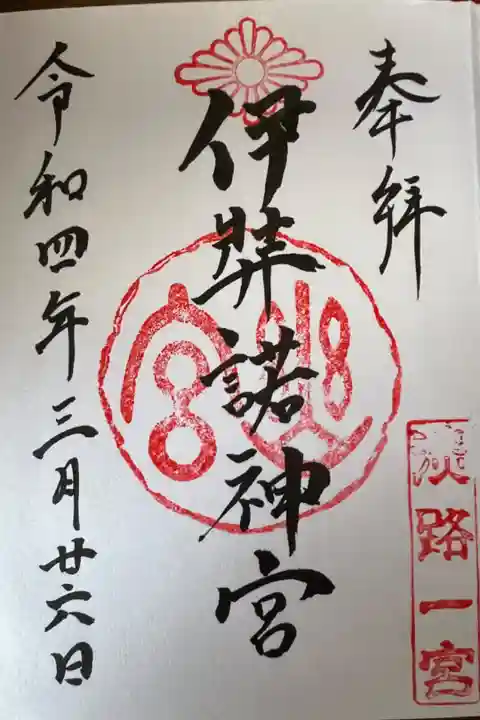 奉拝
伊弉諾神宮
令和四年三月廿六日
淡路一宮